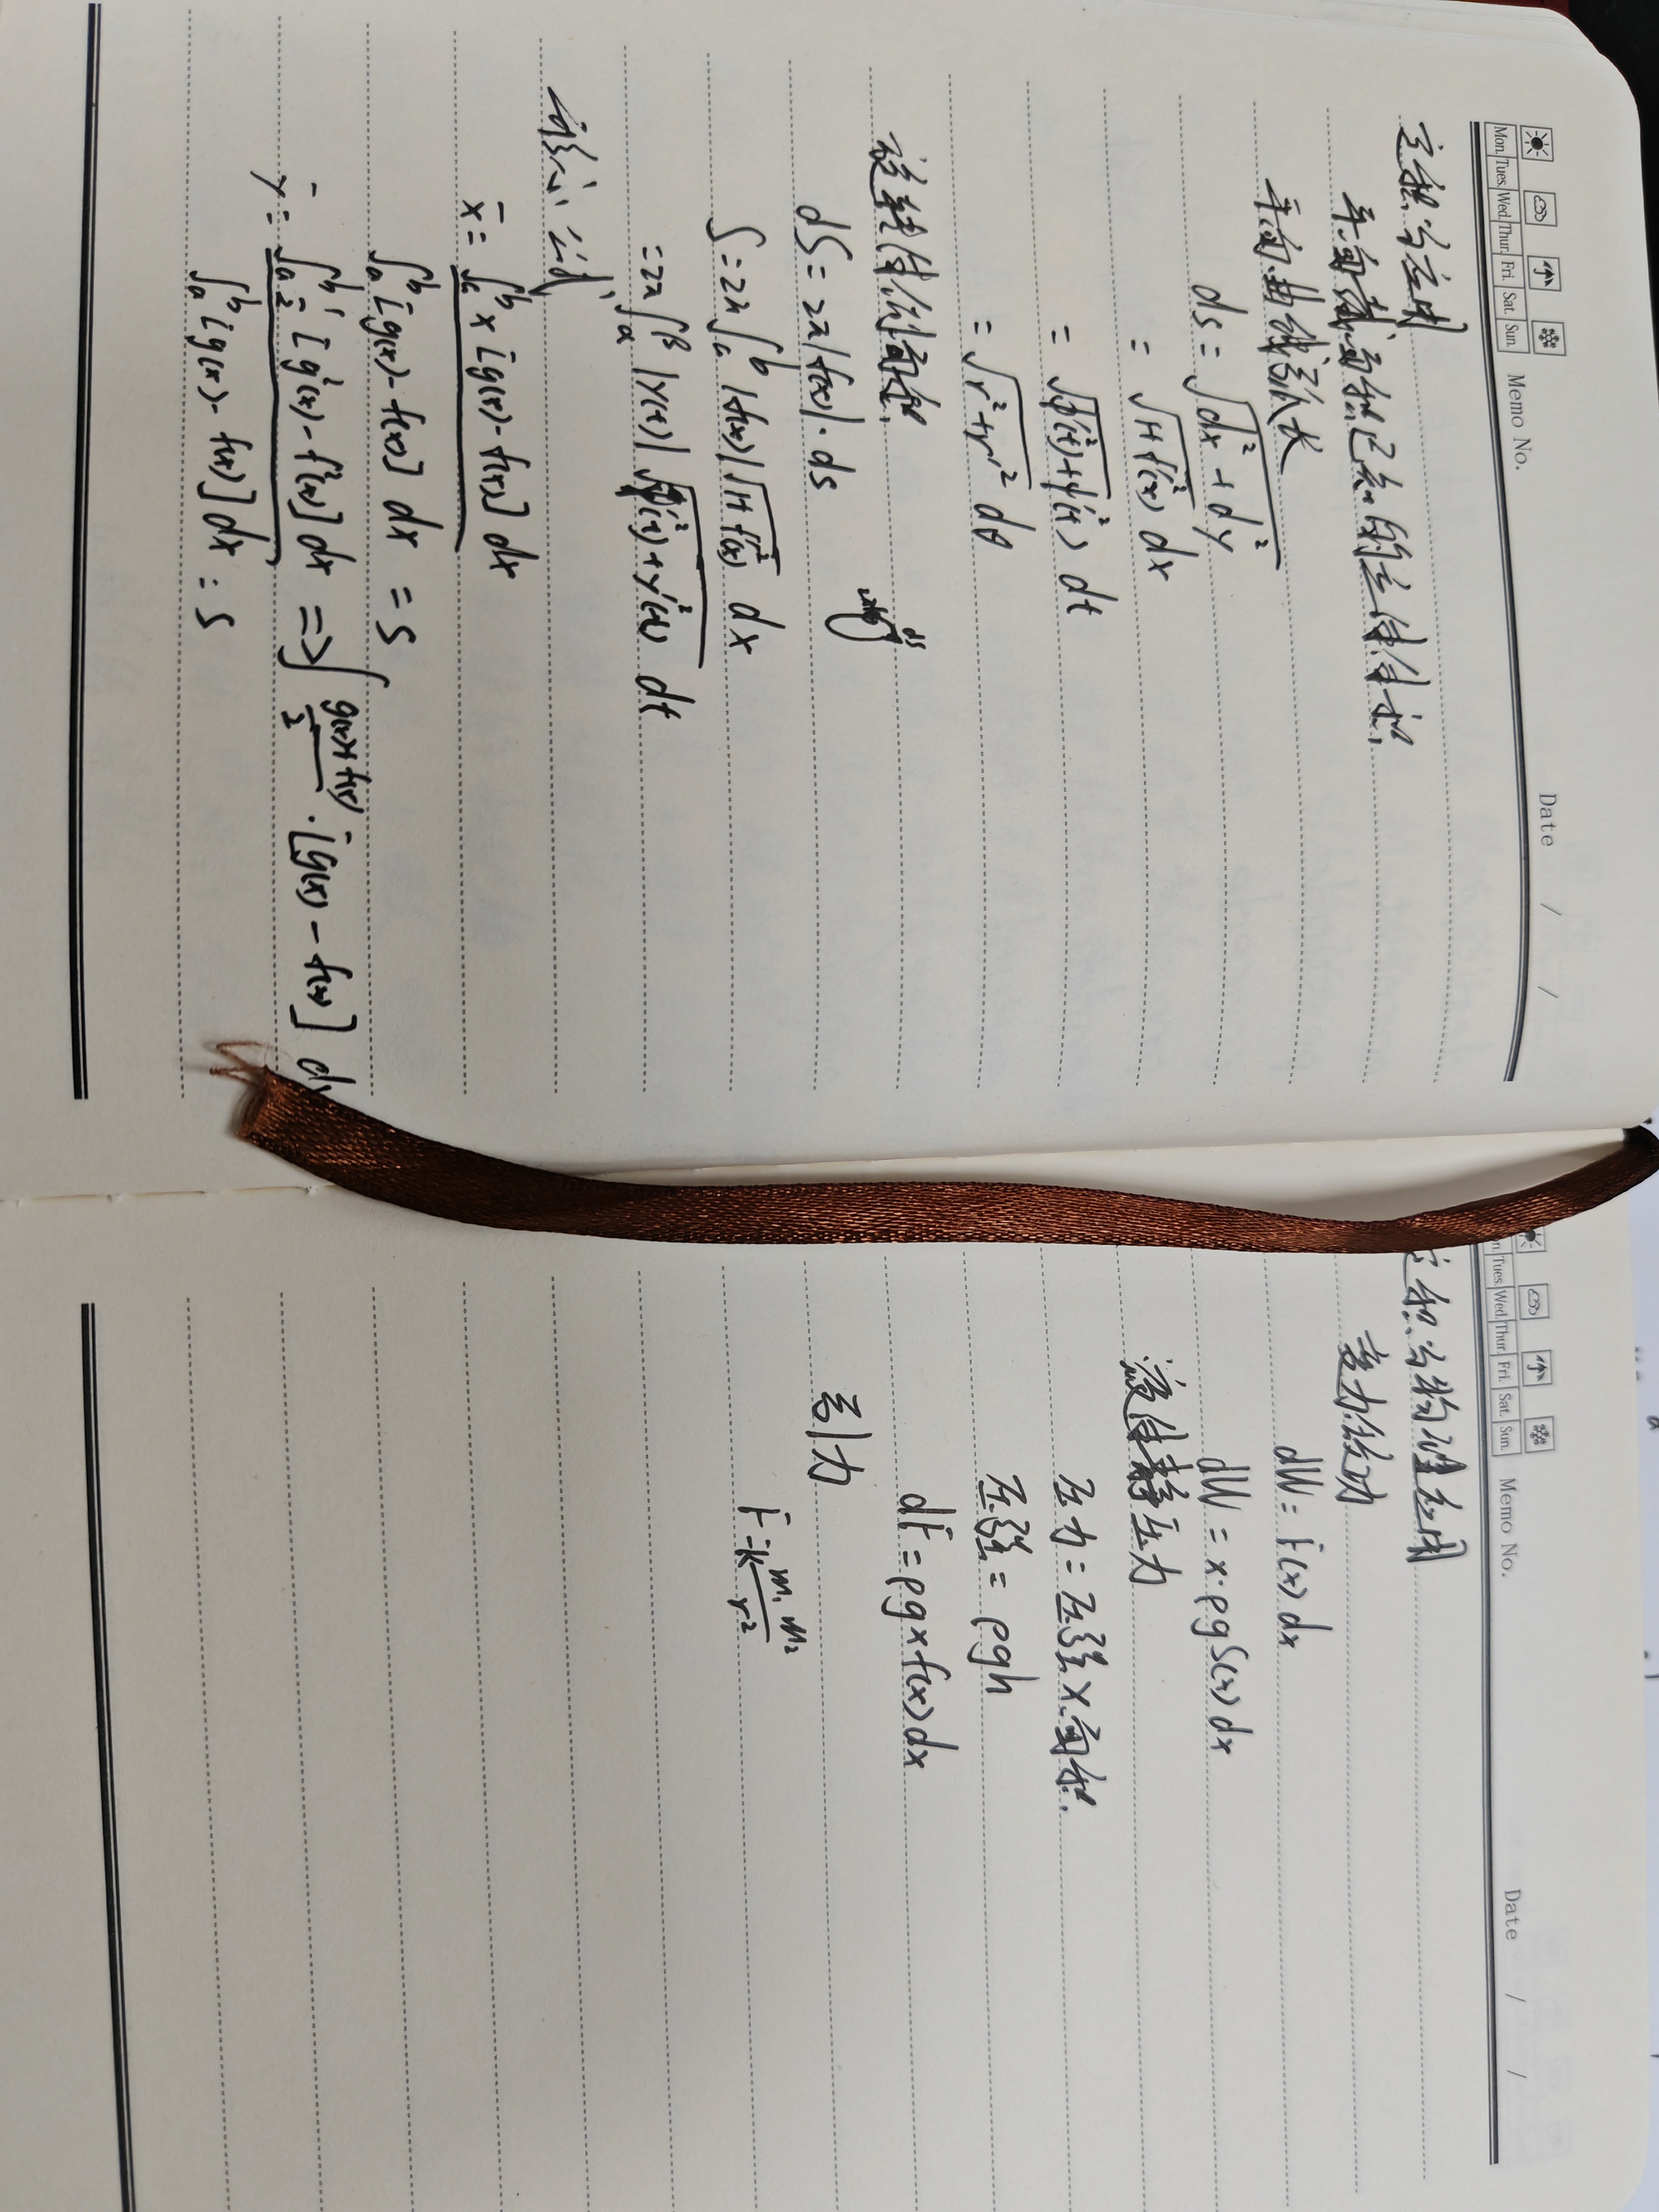 Mon. Tues. Wed. Thur. Fri. Sat. Sun. Memo No. Date / /
定积分应用
平面截面积已知的立体体积
平面曲线弧长
ds = √(dx² + dy²)
= √(1+f'(x)²) dx
= √(φ'(t)²+ψ'(t)²) dt
= √(r²+r'²) dθ
旋转体侧面积
dS = 2π|f(x)|·ds
ds
S = 2π∫ₐᵇ |f(x)|√(1+f'(x)²) dx
= 2π∫_α^β |y(t)|√(φ'(t)²+y'(t)²) dt
形心公式
x̄ = ∫ₐᵇ x[g(x)-f(x)] dx
∫ₐᵇ [g(x)-f(x)] dx = S
ȳ = ∫ₐᵇ ½[g²(x)-f²(x)] dx => ∫ (g(x)+f(x))/2 · [g(x)-f(x)] dx
∫ₐᵇ [g(x)-f(x)] dx = S
Tues. Wed. Thur. Fri. Sat. Sun. Memo No. Date / /
定积分物理应用
变力做功
dW = F(x) dx
dW = x·ρgS(x) dx
液体静压力
压力 = 压强 × 面积
压强 = ρgh
dF = ρgxf(x) dx
引力
F = k m₁m₂/r²